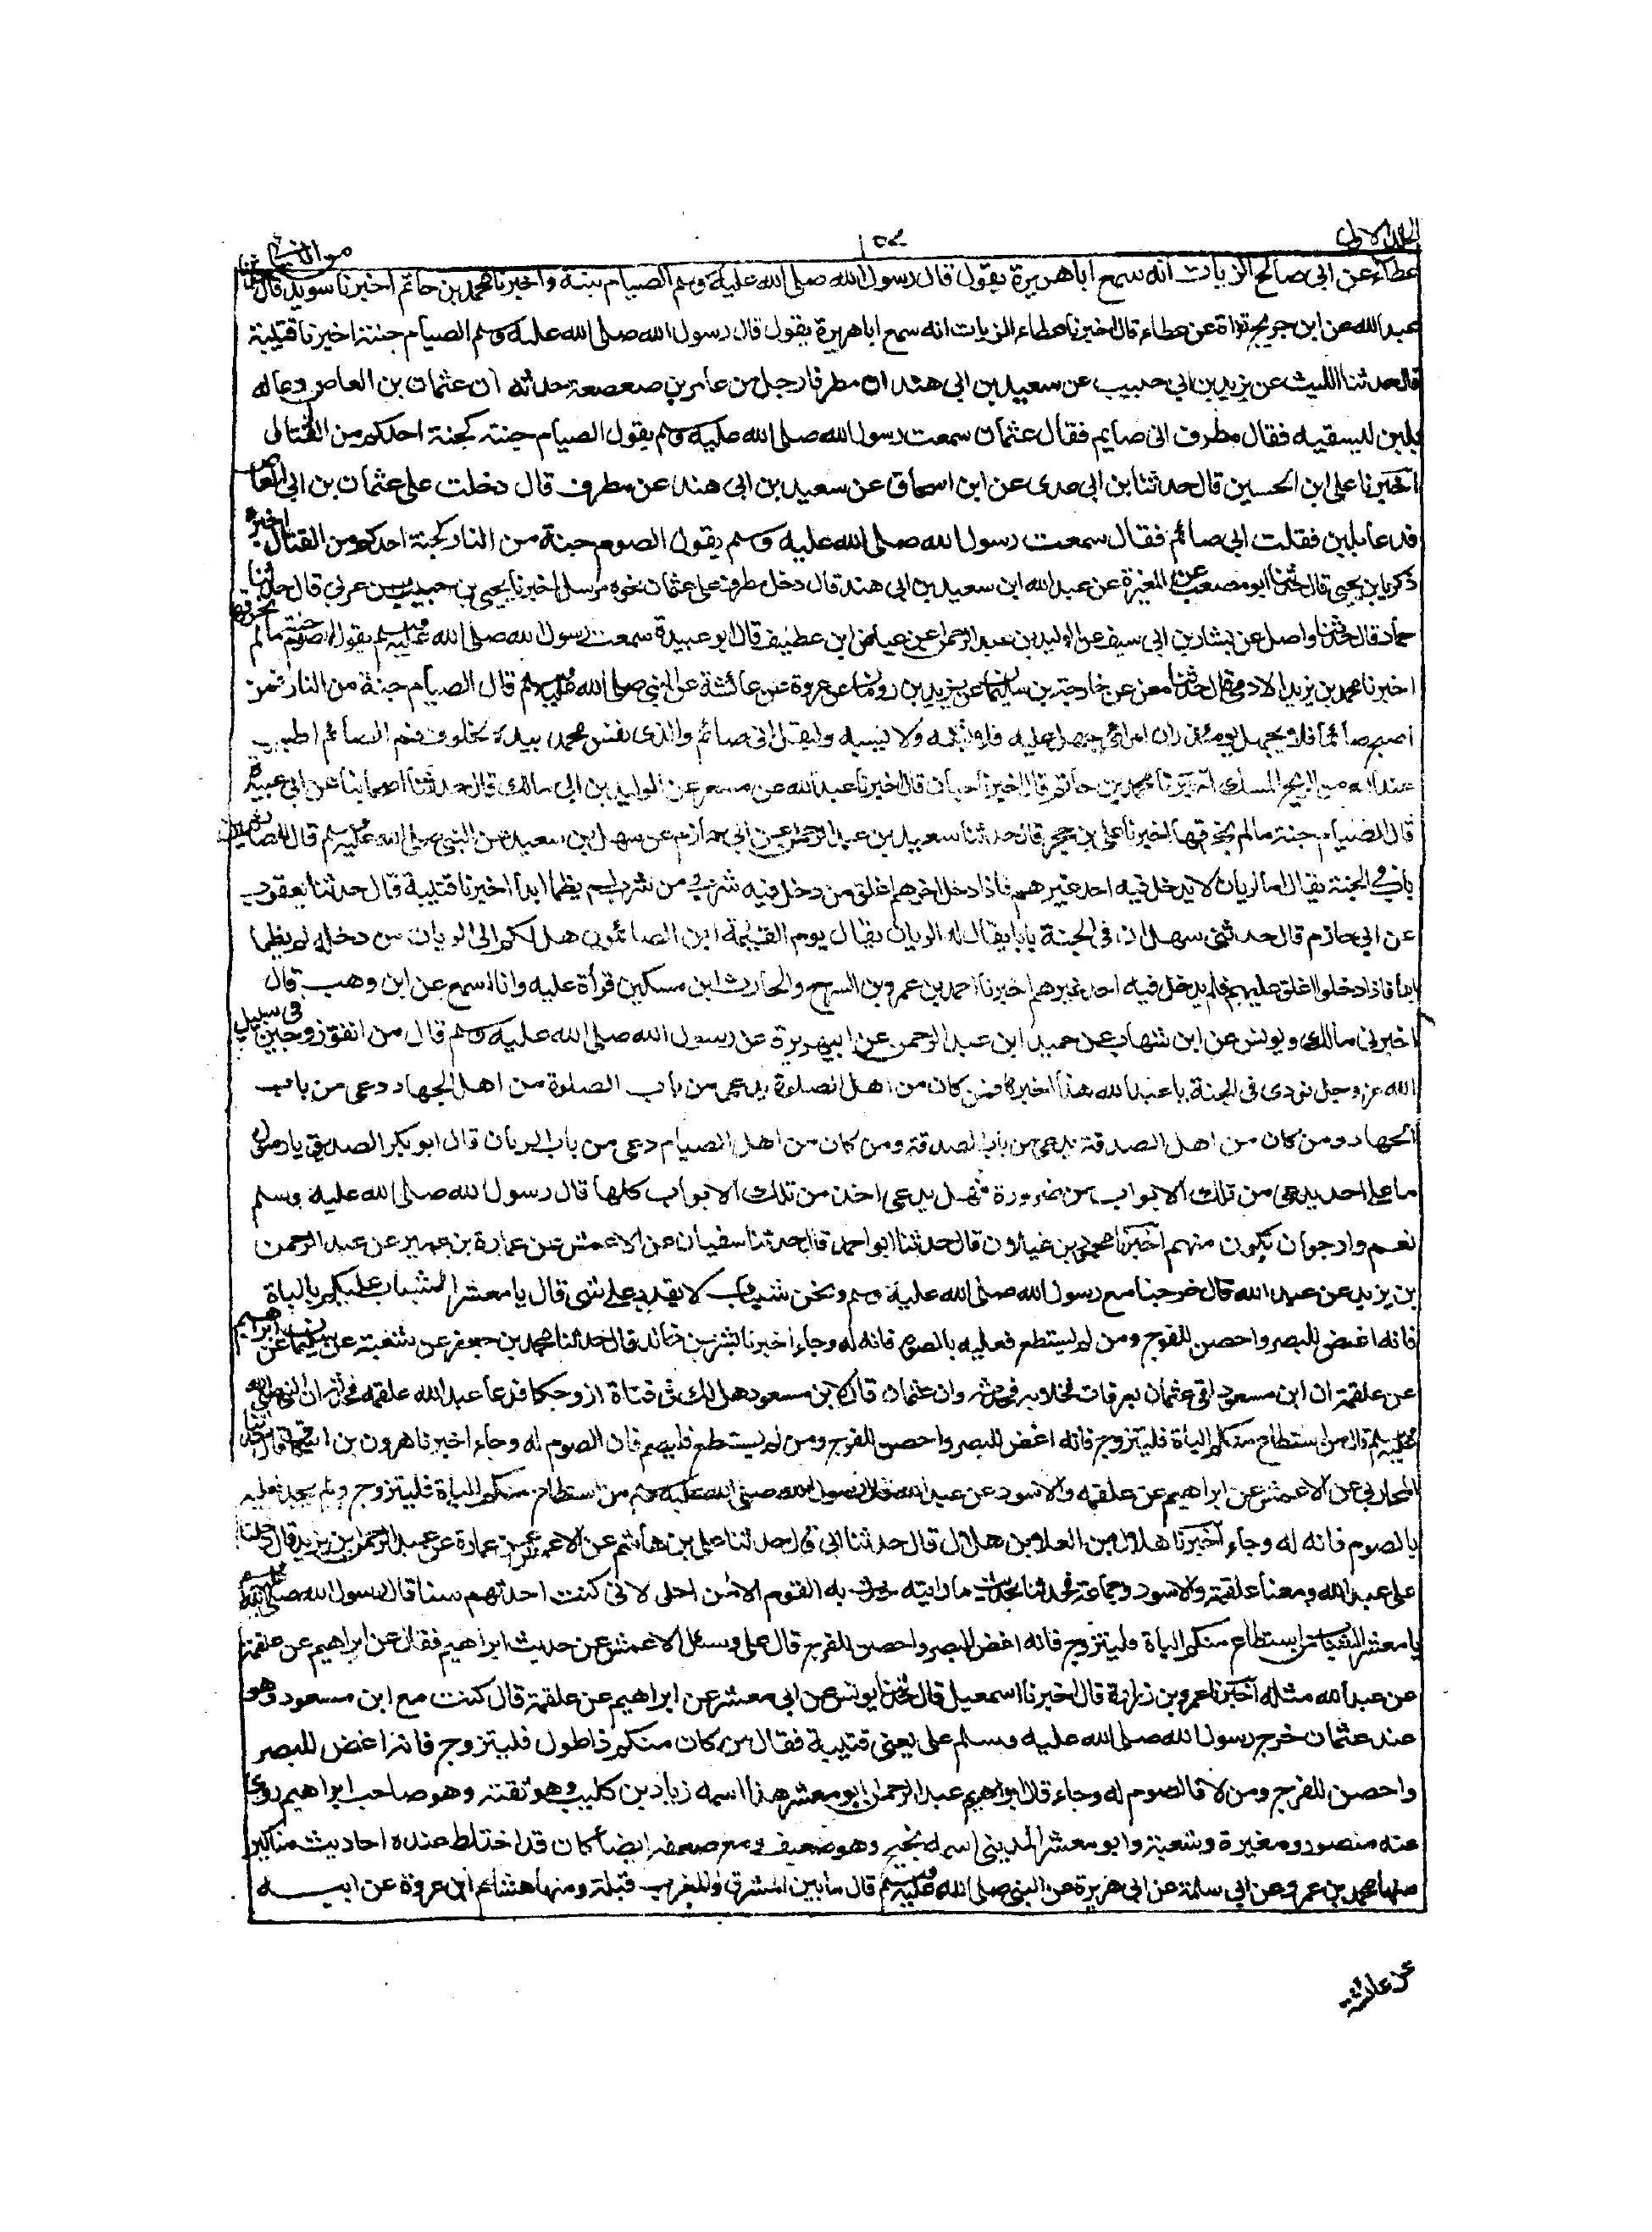 الجلد الاول
عطاء عن ابي صالح الزيات انه سمع اباهريرة يقول قال رسول الله صلى الله عليه وسلم الصيام جنة واخبرنا محمد بن حاتم اخبرنا سويد قال
عبد الله عن ابن جريج قراءة عن عطاء قال اخبرنا عطاء الزيات انه سمع اباهريرة يقول قال رسول الله صلى الله عليه وسلم الصيام جنة اخبرنا قتيبة
قال حدثنا الليث عن يزيد بن ابي حبيب عن سعيد بن ابي هند ان مطرفا رجل من عامر بن صعصعة حدثه ان عثمان بن العاص دعا له
بلبن ليسقيه فقال مطرف انى صايم فقال عثمان سمعت رسول الله صلى الله عليه وسلم يقول الصيام جنة كجنة احدكم من القتال
اخبرنا على ابن الحسين قال حدثنا ابن ابى عدى عن ابن اسحاق عن سعيد بن ابى هند عن مطرف قال دخلت على عثمان بن ابى العاص
فدعا بلبن فقلت انى صائم فقال سمعت رسول الله صلى الله عليه وسلم يقول الصوم جنة من النار كجنة احدكم من القتال اخبرنا
زكريا بن يحيى قال حدثنا ابو مصعب عن المغيرة عن عبد الله ابن سعيد بن ابى هند قال دخل مطرف على عثمان نحوه مرسل اخبرنا يحيى بن حبيب بن عربي قال حدثنا
حماد قال حدثنا واصل عن بشار بن ابى سيف عن الوليد بن عبد الرحمن عن عياض ابن غطيف قال ابو عبيدة سمعت رسول الله صلى الله عليه وسلم يقول الصوم جنة مالم يخرقها
اخبرنا محمد بن يزيد الادمى قال حدثنا معن عن خارجة بن سليمان عن يزيد بن رومان عن عروة عن عائشة عن النبى صلى الله عليه وسلم قال الصيام جنة من النار فمن
اصبح صائما فلا يجهل يومئذ وان امرائ جهل عليه فلا يشتمه ولا يسبه وليقل انى صائم والذى نفس محمد بيده لخلوف فم الصائم اطيب
عند الله من الريح المسك اخبرنا محمد بن حاتم قال اخبرنا حبان قال اخبرنا عبد الله عن مسعر عن الوليد بن ابى مالك قال حدثنا اصحابنا عن ابى عبيدة
قال الصيام جنة مالم يخرقها اخبرنا على بن حجر قال حدثنا سعيد بن عبد الرحمن عن ابى حازم عن سهل بن سعيد عن النبى صلى الله عليه وسلم قال للصائمين
باب في الجنة يقال لها الريان لا يدخل فيه احد غيرهم فاذا دخل اخرهم اغلق من دخل فيه شرب ومن شرب لم يظما ابدا اخبرنا قتيبة قال حدثنا يعقوب
عن ابى حازم قال حدثنى سهل ان فى الجنة بابا يقال له الريان يقال يوم القيمة اين الصائمون هل لكم الى الريان من دخله لم يظما
ابدا فاذا دخلوا اغلق عليهم فلم يدخل فيه احد غيرهم اخبرنا احمد بن عمرو بن السرح والحارث ابن مسكين قرأة عليه وانا اسمع عن ابن وهب قال
اخبرنى مالك ويونس عن ابن شهاب عن حميد ابن عبد الرحمن عن ابيهريرة عن رسول الله صلى الله عليه وسلم قال من انفق زوجين فى سبيل
الله عز وجل نودى فى الجنة يا عبد الله هذا خير فمن كان من اهل الصلوة يدعى من باب الصلوة من اهل الجهاد دعى من باب
الجهاد ومن كان من اهل الصدقة يدعى من باب الصدقة ومن كان من اهل الصيام دعى من باب الريان قال ابو بكر الصديق يا رسول
ما على احد يدعى من تلك الابواب من ضرورة فهل يدعى احد من تلك الابواب كلها قال رسول الله صلى الله عليه وسلم
نعم وارجو ان يكون منهم اخبرنا محمود بن غيلان قال حدثنا ابو احمد قال حدثنا سفيان عن الاعمش عن عمارة بن عمير عن عبد الرحمن
بن يزيد عن عبد الله قال خرجنا مع رسول الله صلى الله عليه وسلم ونحن شباب لا نقدر على شى قال يا معشر الشباب عليكم بالباة
فانه اغض للبصر واحصن للفرج ومن لم يستطع فعليه بالصوم فانه له وجاء اخبرنا بشر بن خالد قال حدثنا محمد بن جعفر عن شعبة عن سليمان عن ابراهيم
عن علقمة ان ابن مسعود لقى عثمان بعرفات فخلا به فحدثه وان عثمان قال لابن مسعود هل لك فى فتاة ازوجكها فدعا عبد الله علقمه فحدث ان النبى صلى الله
عليه وسلم قال من استطاع منكم الباة فليتزوج فانه اغض للبصر واحصن للفرج ومن لم يستطع فليصم فان الصوم له وجاء اخبرنا هرون بن اسحق قال حدثنا
المحاربى عن الاعمش عن ابراهيم عن علقمه والاسود عن عبد الله قال قال رسول الله صلى الله عليه وسلم من استطاع منكم الباة فليتزوج ومن لم يجد فعليه
بالصوم فانه له وجاء اخبرنا هلال بن العلا بن هلال قال حدثنا ابى قال حدثنا على بن هاشم عن الاعمش عن عمارة عن عبد الرحمن بن يزيد قال دخلنا
على عبد الله ومعنا علقمة والاسود وجماعة فحدثنا بحديث ما رايته حدث به القوم الا من اجلى لانى كنت احدثهم سنا قال رسول الله صلى الله عليه وسلم
يا معشر الشباب من استطاع منكم الباة فليتزوج فانه اغض للبصر واحصن للفرج قال على وسئل الاعمش عن حديث ابراهيم فقال عن ابراهيم عن علقمة
عن عبد الله مثله اخبرنا عمرو بن زرارة قال اخبرنا اسمعيل قال حدثنا يونس عن ابى معشر عن ابراهيم عن علقمة قال كنت مع ابن مسعود وهو
عند عثمان خرج رسول الله صلى الله عليه وسلم على يعنى فتيبة فقال من كان منكم ذا طول فليتزوج فانه اغض للبصر
واحصن للفرج ومن لا فالصوم له وجاء قال ابو عبد الرحمن ابو معشر هذا اسمه زياد بن كليب وهو ثقة وهو صاحب ابراهيم روى
عنه منصور ومغيرة وشعبة وابو معشر المدينى اسمه نجيح وهو ضعيف ومع ضعفه ايضا كان قد اختلط عنده احاديث مناكير
منها محمد بن عمرو عن ابى سلمة عن ابى هريرة عن النبى صلى الله عليه وسلم قال ما بين المشرق والمغرب قبلة ومنها هشام ابن عروة عن ابيه
عن عائشة